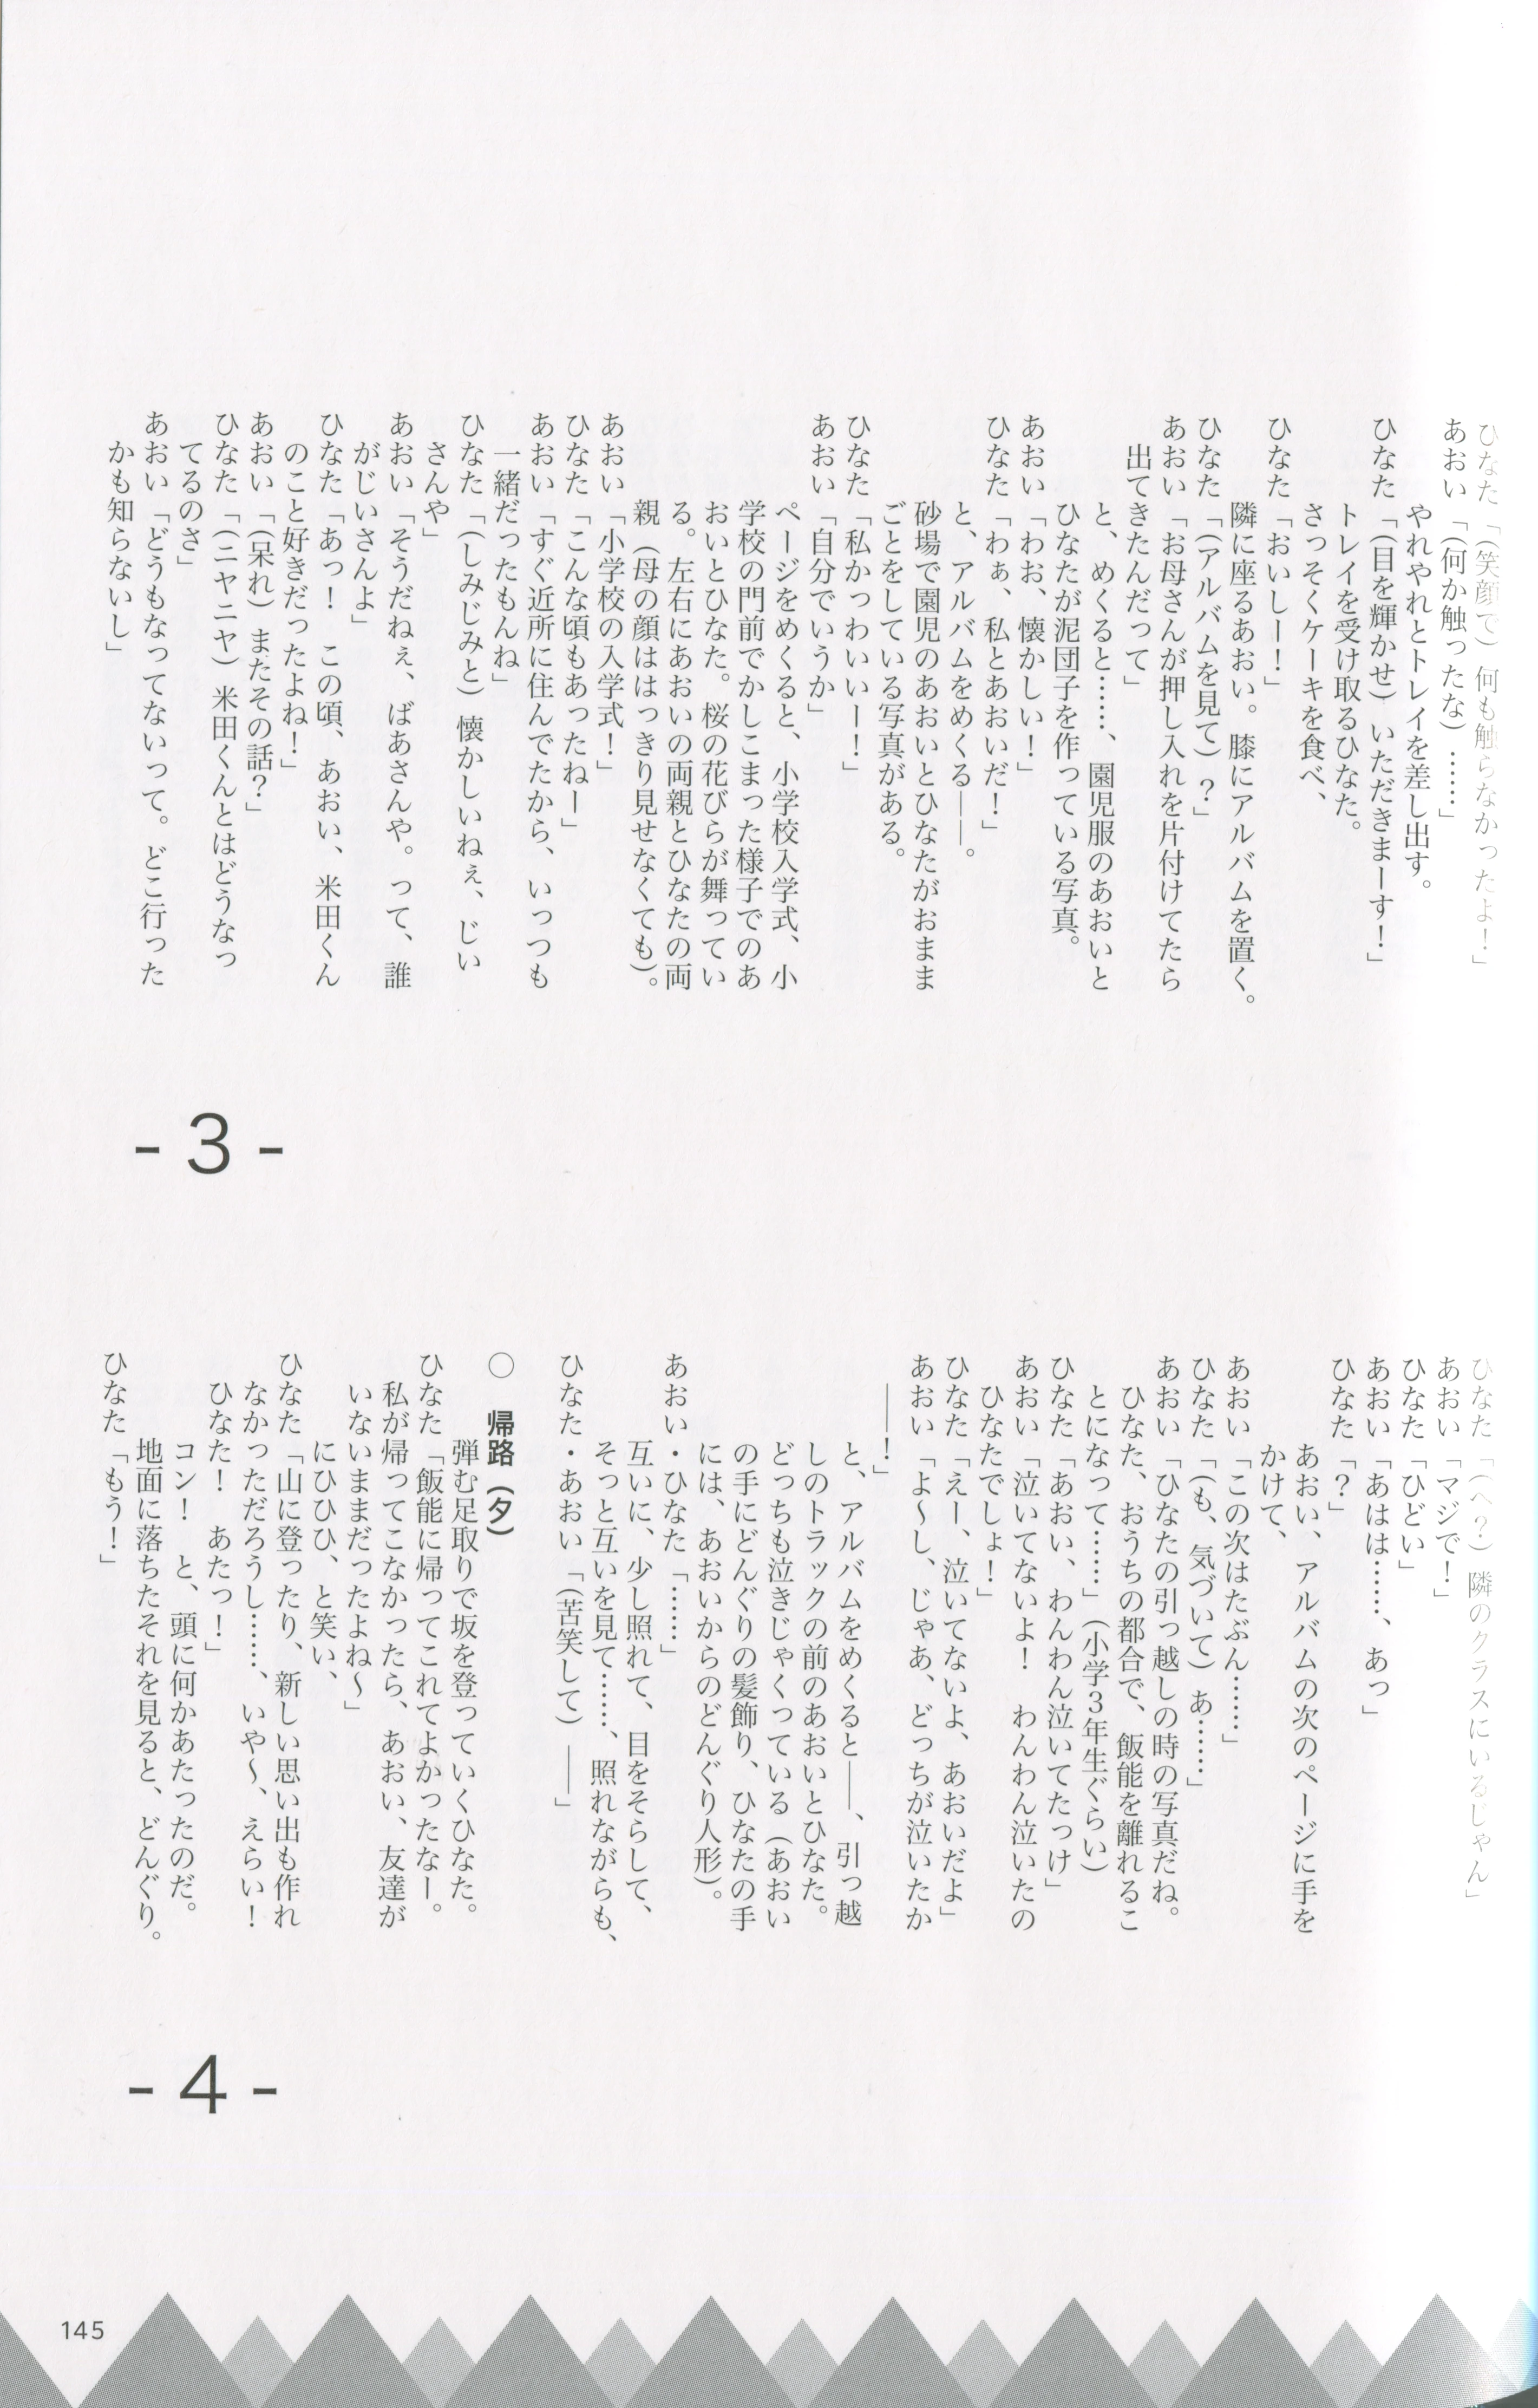 ひなた「（笑顔で）何も触らなかったよ！」
あおい「（何か触ったな）……」
やれやれとトレイを差し出す。
ひなた「（目を輝かせ）いただきまーす！」
トレイを受け取るひなた。
さっそくケーキを食べ、
ひなた「おいしー！」
隣に座るあおい。膝にアルバムを置く。
ひなた「（アルバムを見て）？」
あおい「お母さんが押し入れを片付けてたら
出てきたんだって」
と、めくると……、園児服のあおいと
ひなたが泥団子を作っている写真。
あおい「わお、懐かしい！」
ひなた「わぁ、私とあおいだ！」
と、アルバムをめくる――。
砂場で園児のあおいとひなたがおまま
ごとをしている写真がある。
ひなた「私かっわいいー！」
あおい「自分でいうか」
ページをめくると、小学校入学式、小
学校の門前でかしこまった様子でのあ
おいとひなた。桜の花びらが舞ってい
る。左右にあおいの両親とひなたの両
親（母の顔ははっきり見せなくても）。
あおい「小学校の入学式！」
ひなた「こんな頃もあったねー」
あおい「すぐ近所に住んでたから、いっつも
一緒だったもんね」
ひなた「（しみじみと）懐かしいねぇ、じい
さんや」
あおい「そうだねぇ、ばあさんや。って、誰
がじいさんよ」
ひなた「あっ！　この頃、あおい、米田くん
のこと好きだったよね！」
あおい「（呆れ）まだその話？」
ひなた「（ニヤニヤ）米田くんとはどうなっ
てるのさ」
あおい「どうもなってないって。どこ行った
かも知らないし」
-3-
ひなた「（へ？）隣のクラスにいるじゃん」
あおい「マジで！」
ひなた「ひどい」
あおい「あはは……、あっ」
ひなた「？」
あおい、アルバムの次のページに手を
かけて、
あおい「この次はたぶん……」
ひなた「（も、気づいて）あ……」
あおい「ひなたの引っ越しの時の写真だね。
ひなた、おうちの都合で、飯能を離れるこ
とになって……」（小学３年生ぐらい）
ひなた「あおい、わんわん泣いてたっけ」
あおい「泣いてないよ！　わんわん泣いたの
ひなたでしょ！」
ひなた「えー、泣いてないよ、あおいだよ」
あおい「よ〜し、じゃあ、どっちが泣いたか
――！」
と、アルバムをめくると――、引っ越
しのトラックの前のあおいとひなた。
どっちも泣きじゃくっている（あおい
の手にどんぐりの髪飾り、ひなたの手
には、あおいからのどんぐり人形）。
あおい・ひなた「……」
互いに、少し照れて、目をそらして、
そっと互いを見て……、照れながらも、
ひなた・あおい「（苦笑して）――」
○　帰路（夕）
弾む足取りで坂を登っていくひなた。
ひなた「飯能に帰ってこれてよかったなー。
私が帰ってこなかったら、あおい、友達が
いないままだったよね〜」
にひひひ、と笑い、
ひなた「山に登ったり、新しい思い出も作れ
なかっただろうし……、いや〜、えらい！
ひなた！　あたっ！」
コン！　と、頭に何かあたったのだ。
地面に落ちたそれを見ると、どんぐり。
ひなた「もう！」
-4-
145